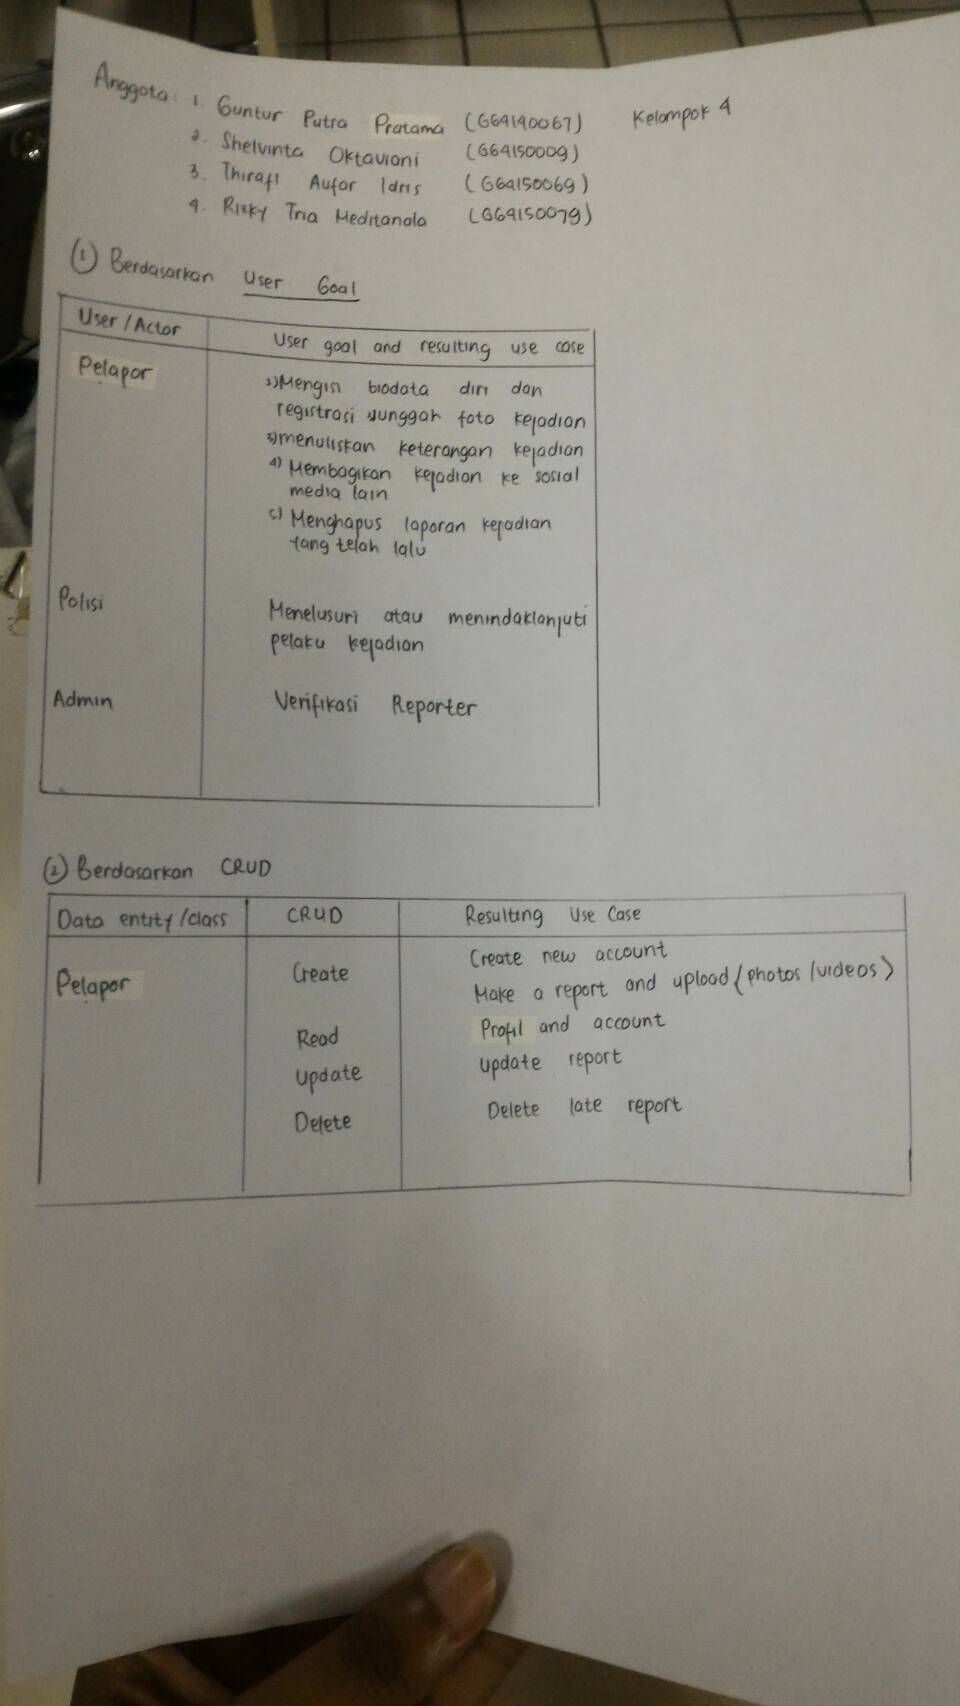 Anggota: 1. Guntur Putra Pratama (G64140067) Kelompok 4
2. Shelvinta Oktaviani (G64150009)
3. Thirafi Aufar Idris (G64150069)
4. Rizky Tria Meditanala (G64150079)
① Berdasarkan User Goal
User / Actor User goal and resulting use case
Pelapor 1) Mengisi biodata diri dan
registrasi 2) unggah foto kejadian
3) menuliskan keterangan kejadian
4) Membagikan kejadian ke sosial
media lain
5) Menghapus laporan kejadian
yang telah lalu
Polisi Menelusuri atau menindaklanjuti
pelaku kejadian
Admin Verifikasi Reporter
② Berdasarkan CRUD
Data entity /class CRUD Resulting Use Case
Pelapor Create Create new account
Make a report and upload (photos /videos)
Read Profil and account
Update Update report
Delete Delete late report